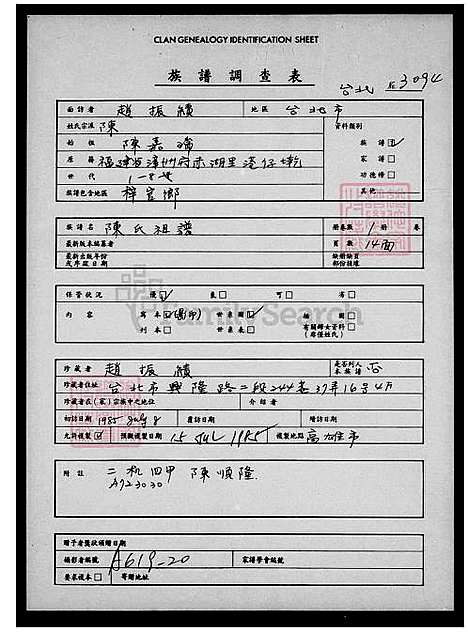 CLAN GENEALOGY IDENTIFICATION SHEET
族譜調查表
台北 3094
面訪者 趙振績 地區 台北市
姓氏宗派 陳 資料類別
始祖 陳嘉瑞 族譜
原籍 福建省漳州府赤湖里 家譜
世代 功德榜
族譜包含地區 梓官鄉 其他
族譜名 陳氏祖譜 冊卷數 1 冊 卷
最新版本編纂者 頁數 14面
最新出版年份及序跋日期 缺冊缺頁部份損壞
保管狀況 優 良 可 劣
內容 寫本(影印) 世系圖 插圖
刊本 世系表 有關婦女資料(廠僅姓氏)
FamilySearch
珍藏者 趙振績 是否列入本族譜 否
珍藏者住址 台北市興隆路二段244巷37弄16号4F
珍藏者在(家)宗族中之地位 介紹者
初訪日期 1985 July 8 覆訪日期 增訪日期
允許複製 預擬複製日期 15 Jul 1985 複製地點 高雄市
附註 二机四甲 陳順隆
3123030
贈予者簽收領贈日期
攝影者編號 A619-20 家譜學會編號
要求複本 寄贈地址